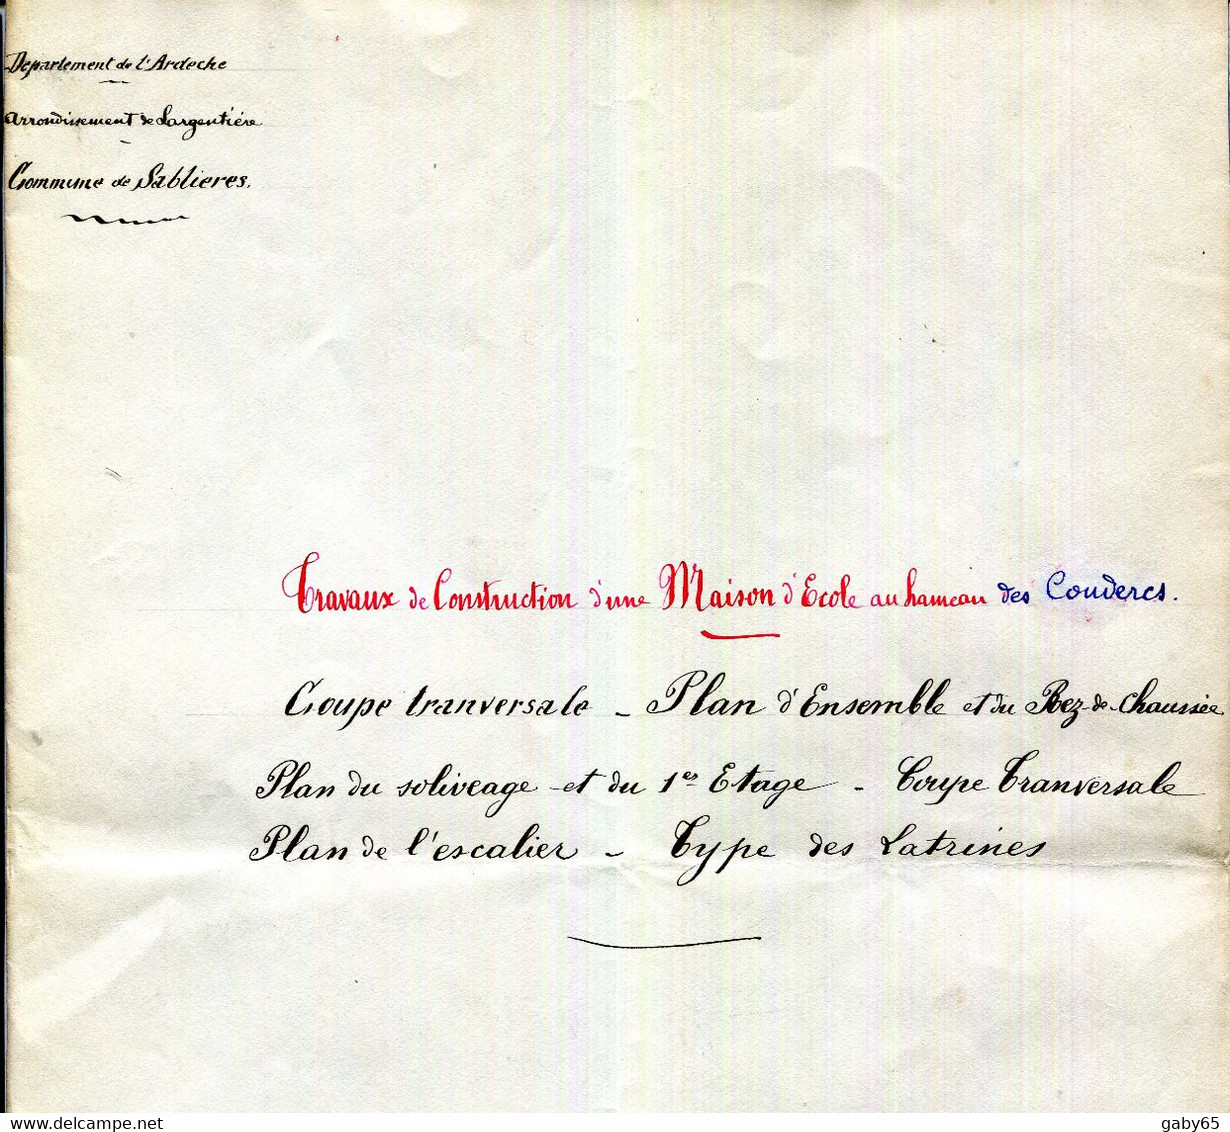 Département de l'Ardèche
Arrondissement de Largentière
Commune de Sablieres.
Travaux de Construction d'une Maison d'Ecole au hameau des Coudercs.
Coupe tranversale - Plan d'Ensemble et du Rez-de-Chaussée
Plan du soliveage et du 1er Etage - Coupe Tranversale
Plan de l'escalier - Type des Latrines
www.delcampe.net gaby65